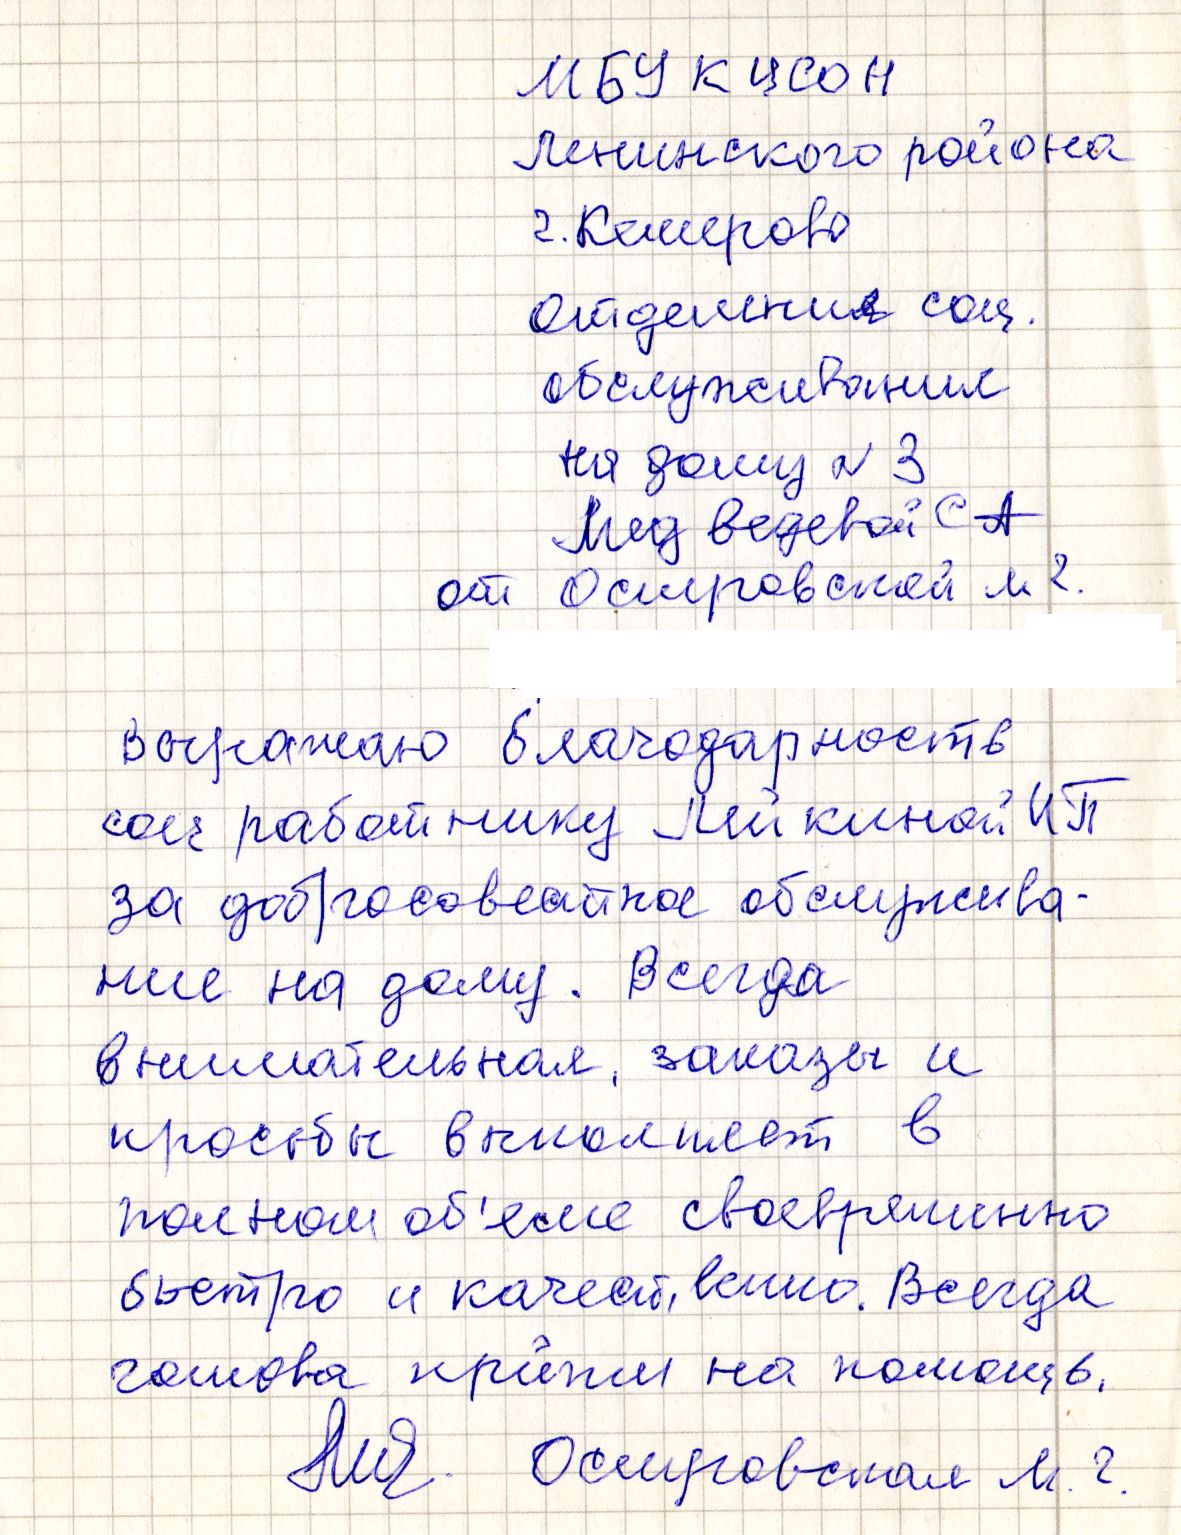 МБУ КЦСОН
Ленинского района
г. Кемерово
отделения соц.
обслуживания
на дому N 3
Медведевой С А
от Осиповской М Г.
Выражаю благодарность
соц работнику Лейкиной И П
за добросовестное обслужива-
ние на дому. Всегда
внимательная, заказы и
просьбы выполняет в
полном об'еме своевременно
быстро и качественно. Всегда
готова прийти на помощь.
М. Г.